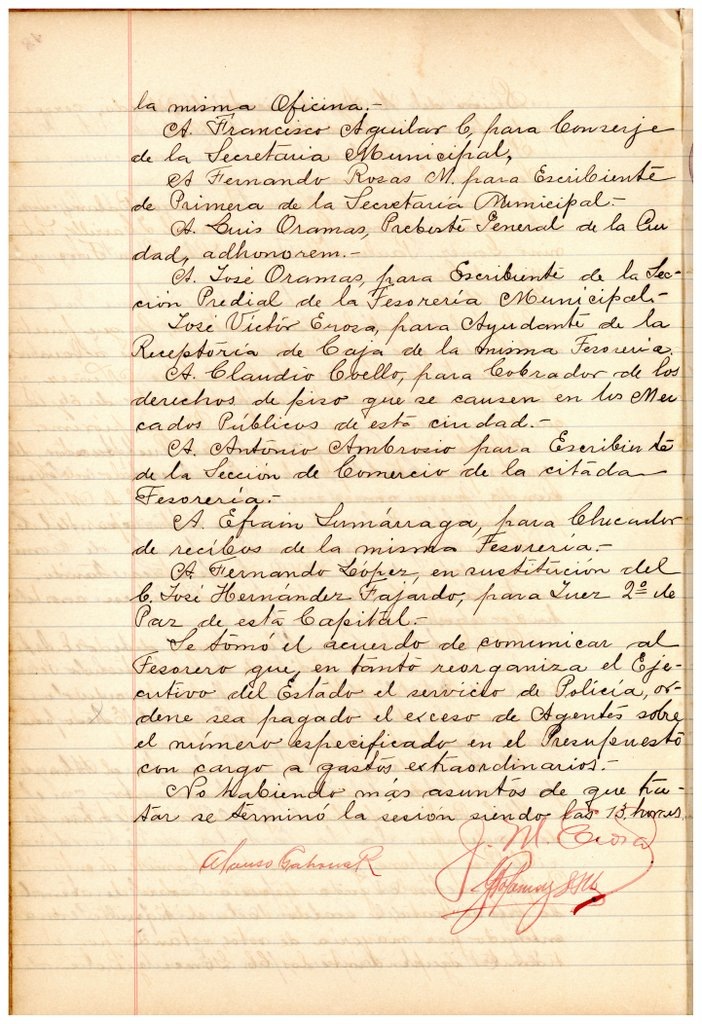 la misma Oficina.-
A. Francisco Aguilar C, para Conserje
de la Secretaria Municipal,
A Fernando Rosas M. para Escribiente
de Primera de la Secretaria Municipal.-
A. Luis Oramas, Preboste General de la Ciu
dad, adhonorem.-
A. José Oramas, para Escribiente de la Sec-
ción Predial de la Tesorería Municipal.-
José Víctor Erosa, para Ayudante de la
Receptoría de Caja de la misma Tesorería.
A. Claudio Coello, para Cobrador de los
derechos de piso que se causen en los Mer
cados Públicos de esta ciudad.-
A. Antonio Ambrosio para Escribiente
de la Sección de Comercio de la citada
Tesorería.-
A. Efrain Lumárraga, para Checador
de recibos de la misma Tesorería.-
A Fernando López, en sustitución del
C. José Hernández Fajardo, para Juez 2º de
Paz de esta Capital.-
Se tomó el acuerdo de comunicar al
Tesorero que, en tanto reorganiza el Eje-
cutivo del Estado el servicio de Policía, or-
dene sea pagado el exceso de Agentes sobre
el número especificado en el Presupuesto
con cargo a gastos extraordinarios.-
No habiendo más asuntos de que tra-
tar se terminó la sesión siendo las 13 horas
J. M. Erosa